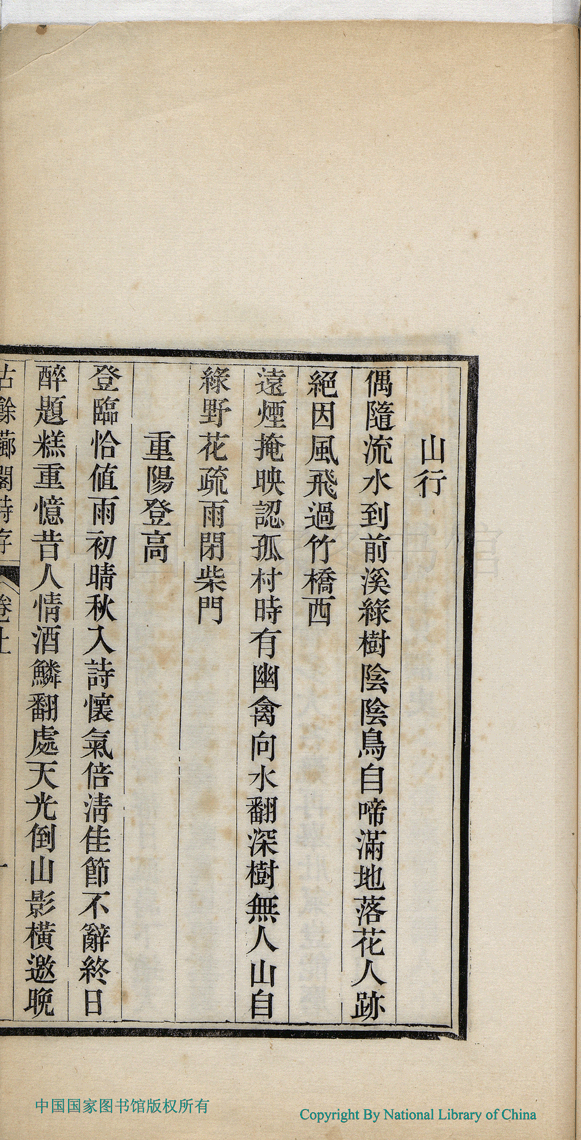 山行
偶隨流水到前溪綠樹陰陰鳥自啼滿地落花人跡
絕因風飛過竹橋西
遠煙掩映認孤村時有幽禽向水翻深樹無人山自
綠野花疏雨閉柴門
重陽登高
登臨恰值雨初晴秋入詩懷氣倍淸佳節不辭終日
醉題糕重憶昔人情酒鱗翻處天光倒山影橫邀晚
餘閣詩存
卷上
中国国家图书馆版权所有
Copyright By National Library of China